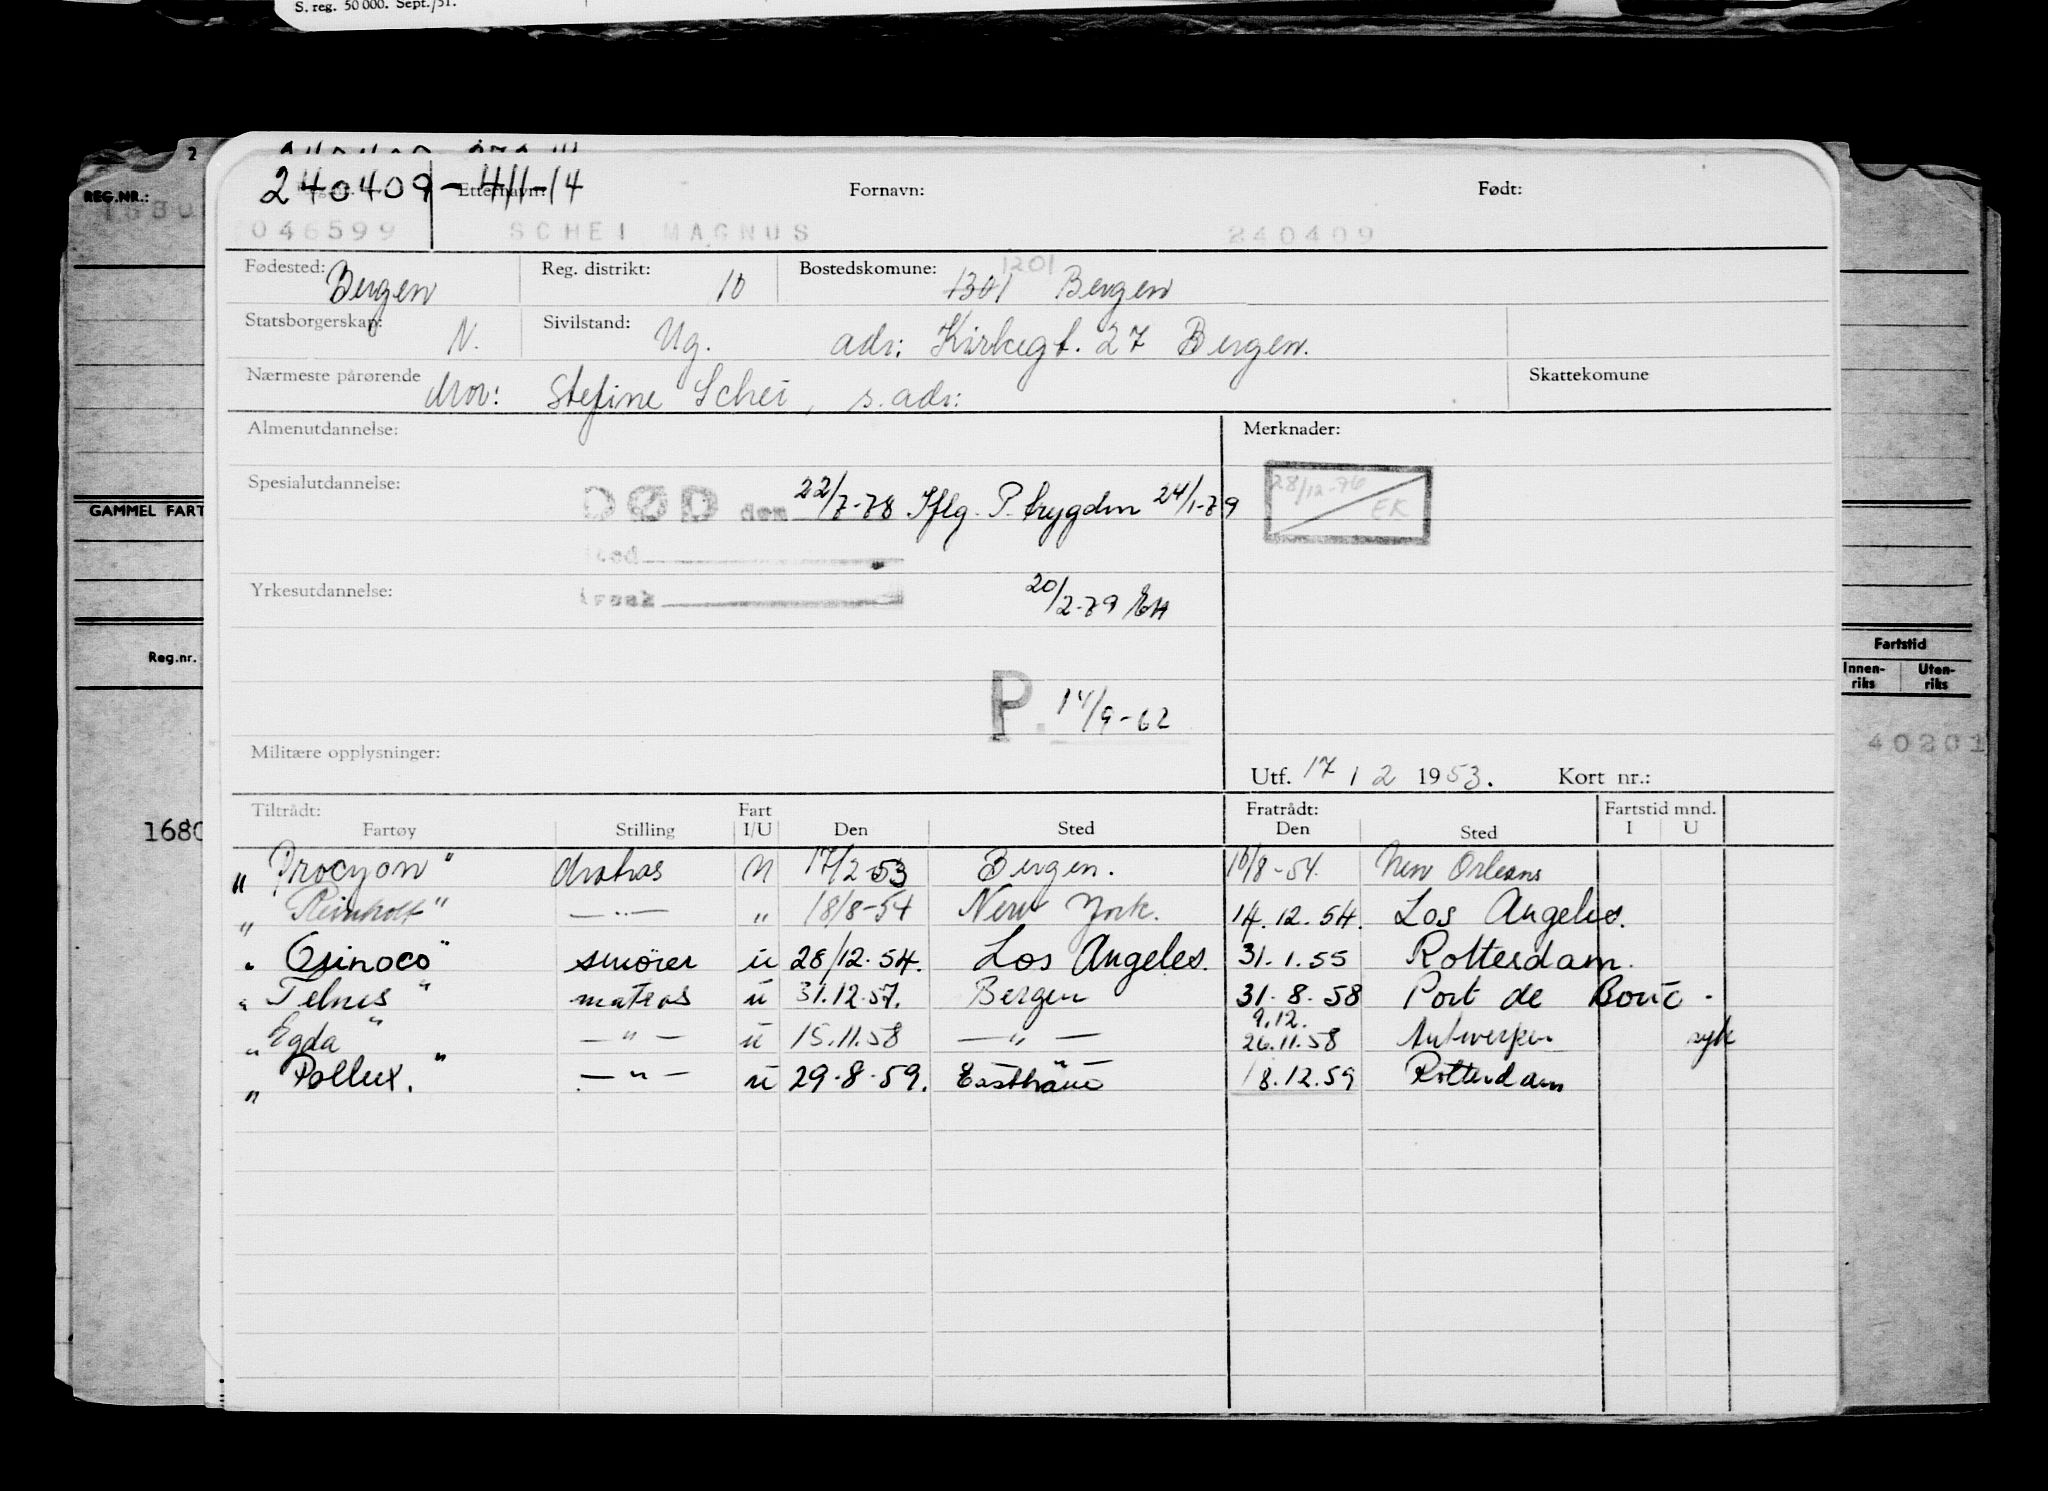 S. reg. 50 000. Sept./51.
2
REG.NR.:
240409-411-14
Etternavn:
Fornavn:
Født:
046599 SCHEI MAGNUS 240409
Fødested: Bergen Reg. distrikt: 10 Bostedskomune: 1301 1201 Bergen
Statsborgerskap: N. Sivilstand: Ug. adr: Kirkegt. 27 Bergen.
Nærmeste pårørende Mor: Stefine Schei, s. adr: Skattekomune
Almenutdannelse: Merknader:
Spesialutdannelse: DØD den 22/7-78 Iflg. P. trygden 24/1-79 28/12-76 EK
GAMMEL FART
Yrkesutdannelse: 20/2-79 EH
Reg.nr.
Fartstid
Innen-riks Uten-riks
P. 14/9-62
40201
Militære opplysninger:
Utf. 17 / 2 1953. Kort nr.:
1680
Tiltrådt: Fart Fratrådt: Fartstid mnd.
Fartøy Stilling I/U Den Sted Den Sted I U
"Procyon" Matros U 17/2-53 Bergen. 10/8-54. New Orleans
"Reinholt" —"— " 18/8-54 New York. 14.12.54. Los Angeles.
"Orinoco" smører u 28/12.54. Los Angeles. 31.1.55 Rotterdam.
"Telnes" matros u 31.12.57. Bergen 31.8.58 Port de Bouc.
9.12.
"Egda" —"— u 15.11.58 —"— 26.11.58 Antwerpen syk
"Pollux." —"— u 29.8.59. Eastham 18.12.59 Rotterdam